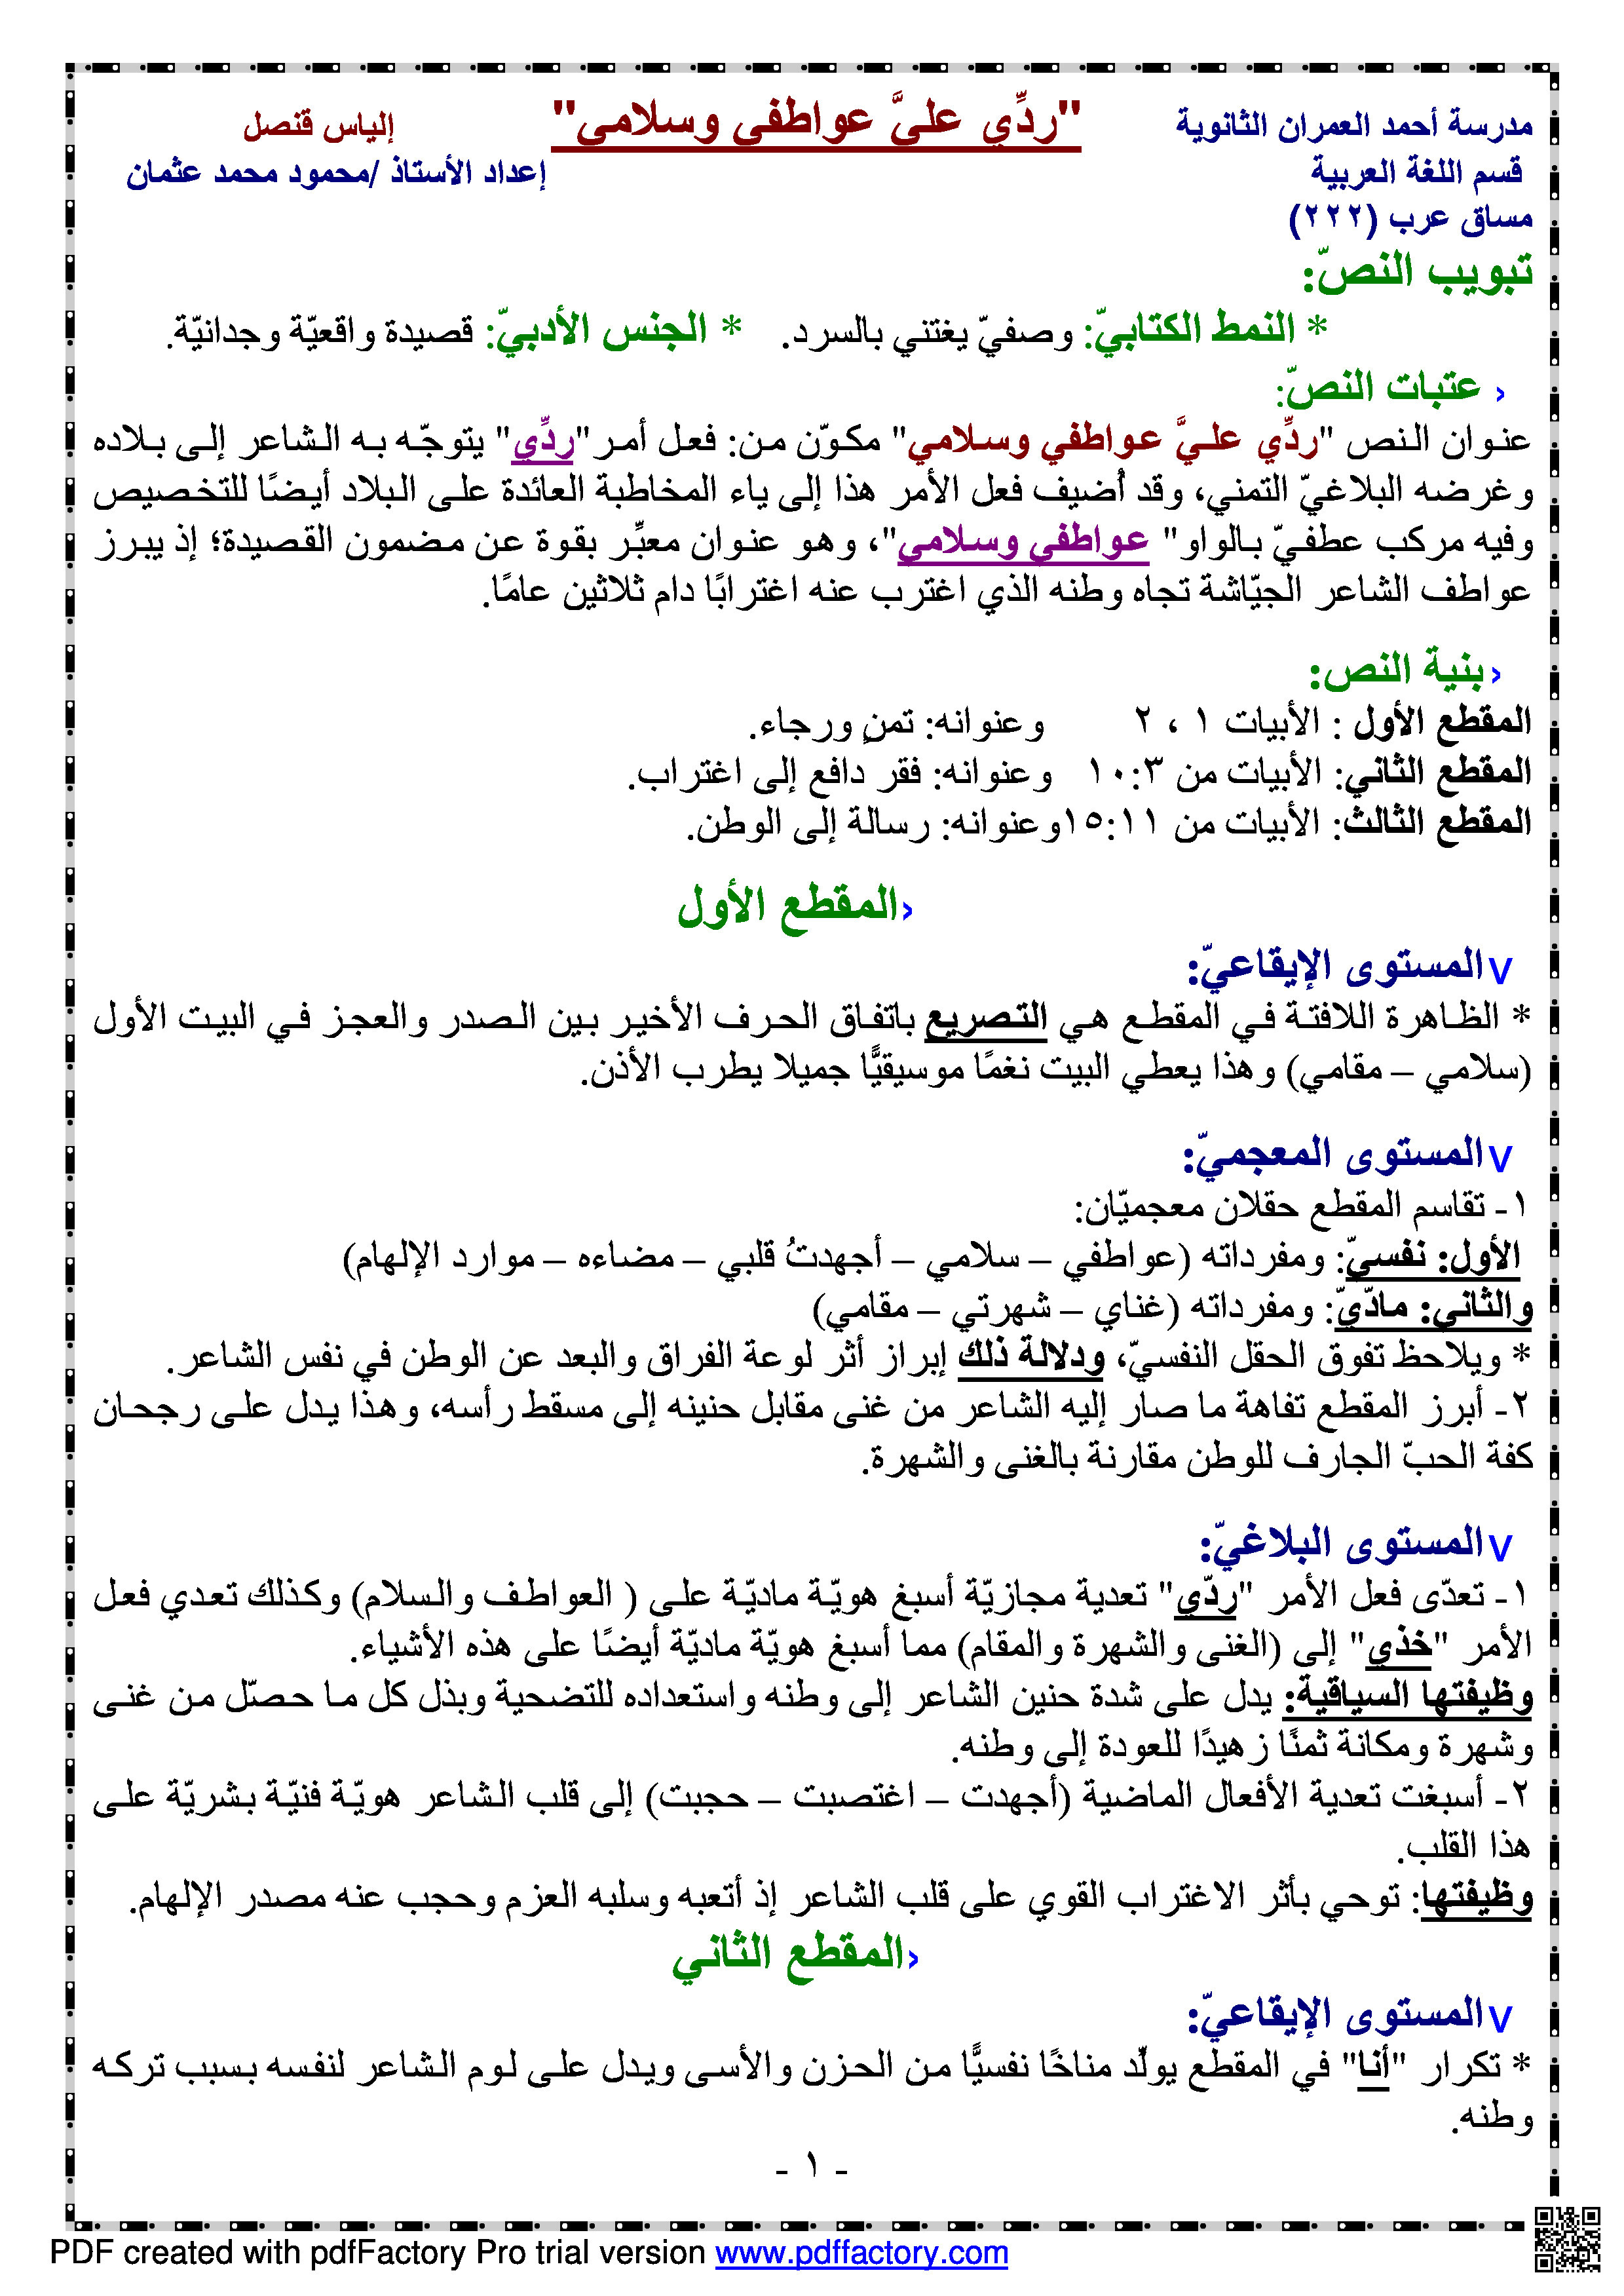 مدرسة أحمد العمران الثانوية "ردِّي عليَّ عواطفي وسلامي" إلياس قنصل
قسم اللغة العربية إعداد الأستاذ /محمود محمد عثمان
مساق عرب (٢٢٢)
تبويب النصّ:
* النمط الكتابيّ: وصفيّ يغتني بالسرد. * الجنس الأدبيّ: قصيدة واقعيّة وجدانيّة.
‹ عتبات النصّ:
عنوان النص "ردِّي عليَّ عواطفي وسلامي" مكوّن من: فعل أمر "ردِّي" يتوجّه به الشاعر إلى بلاده
وغرضه البلاغيّ التمني، وقد أُضيف فعل الأمر هذا إلى ياء المخاطبة العائدة على البلاد أيضًا للتخصيص
وفيه مركب عطفيّ بالواو" عواطفي وسلامي"، وهو عنوان معبِّر بقوة عن مضمون القصيدة؛ إذ يبرز
عواطف الشاعر الجيّاشة تجاه وطنه الذي اغترب عنه اغترابًا دام ثلاثين عامًا.
‹ بنية النص:
المقطع الأول : الأبيات ١ ، ٢ وعنوانه: تمنٍ ورجاء.
المقطع الثاني: الأبيات من ١٠:٣ وعنوانه: فقر دافع إلى اغتراب.
المقطع الثالث: الأبيات من ١٥:١١وعنوانه: رسالة إلى الوطن.
‹المقطع الأول
٧ المستوى الإيقاعيّ:
* الظاهرة اللافتة في المقطع هي التصريع باتفاق الحرف الأخير بين الصدر والعجز في البيت الأول
(سلامي – مقامي) وهذا يعطي البيت نغمًا موسيقيًّا جميلا يطرب الأذن.
٧ المستوى المعجميّ:
١- تقاسم المقطع حقلان معجميّان:
الأول: نفسيّ: ومفرداته (عواطفي – سلامي – أجهدتُ قلبي – مضاءه – موارد الإلهام)
والثاني: مادّيّ: ومفرداته (غناي – شهرتي – مقامي)
* ويلاحظ تفوق الحقل النفسيّ، ودلالة ذلك إبراز أثر لوعة الفراق والبعد عن الوطن في نفس الشاعر.
٢- أبرز المقطع تفاهة ما صار إليه الشاعر من غنى مقابل حنينه إلى مسقط رأسه، وهذا يدل على رجحان
كفة الحبّ الجارف للوطن مقارنة بالغنى والشهرة.
٧ المستوى البلاغيّ:
١- تعدّى فعل الأمر "ردّي" تعدية مجازيّة أسبغ هويّة ماديّة على ( العواطف والسلام) وكذلك تعدي فعل
الأمر "خذي" إلى (الغنى والشهرة والمقام) مما أسبغ هويّة ماديّة أيضًا على هذه الأشياء.
وظيفتها السياقية: يدل على شدة حنين الشاعر إلى وطنه واستعداده للتضحية وبذل كل ما حصّل من غنى
وشهرة ومكانة ثمنًا زهيدًا للعودة إلى وطنه.
٢- أسبغت تعدية الأفعال الماضية (أجهدت – اغتصبت – حجبت) إلى قلب الشاعر هويّة فنيّة بشريّة على
هذا القلب.
وظيفتها: توحي بأثر الاغتراب القوي على قلب الشاعر إذ أتعبه وسلبه العزم وحجب عنه مصدر الإلهام.
‹المقطع الثاني
٧ المستوى الإيقاعيّ:
* تكرار "أنا" في المقطع يولّد مناخًا نفسيًّا من الحزن والأسى ويدل على لوم الشاعر لنفسه بسبب تركه
وطنه.
- ١ -
PDF created with pdfFactory Pro trial version www.pdffactory.com